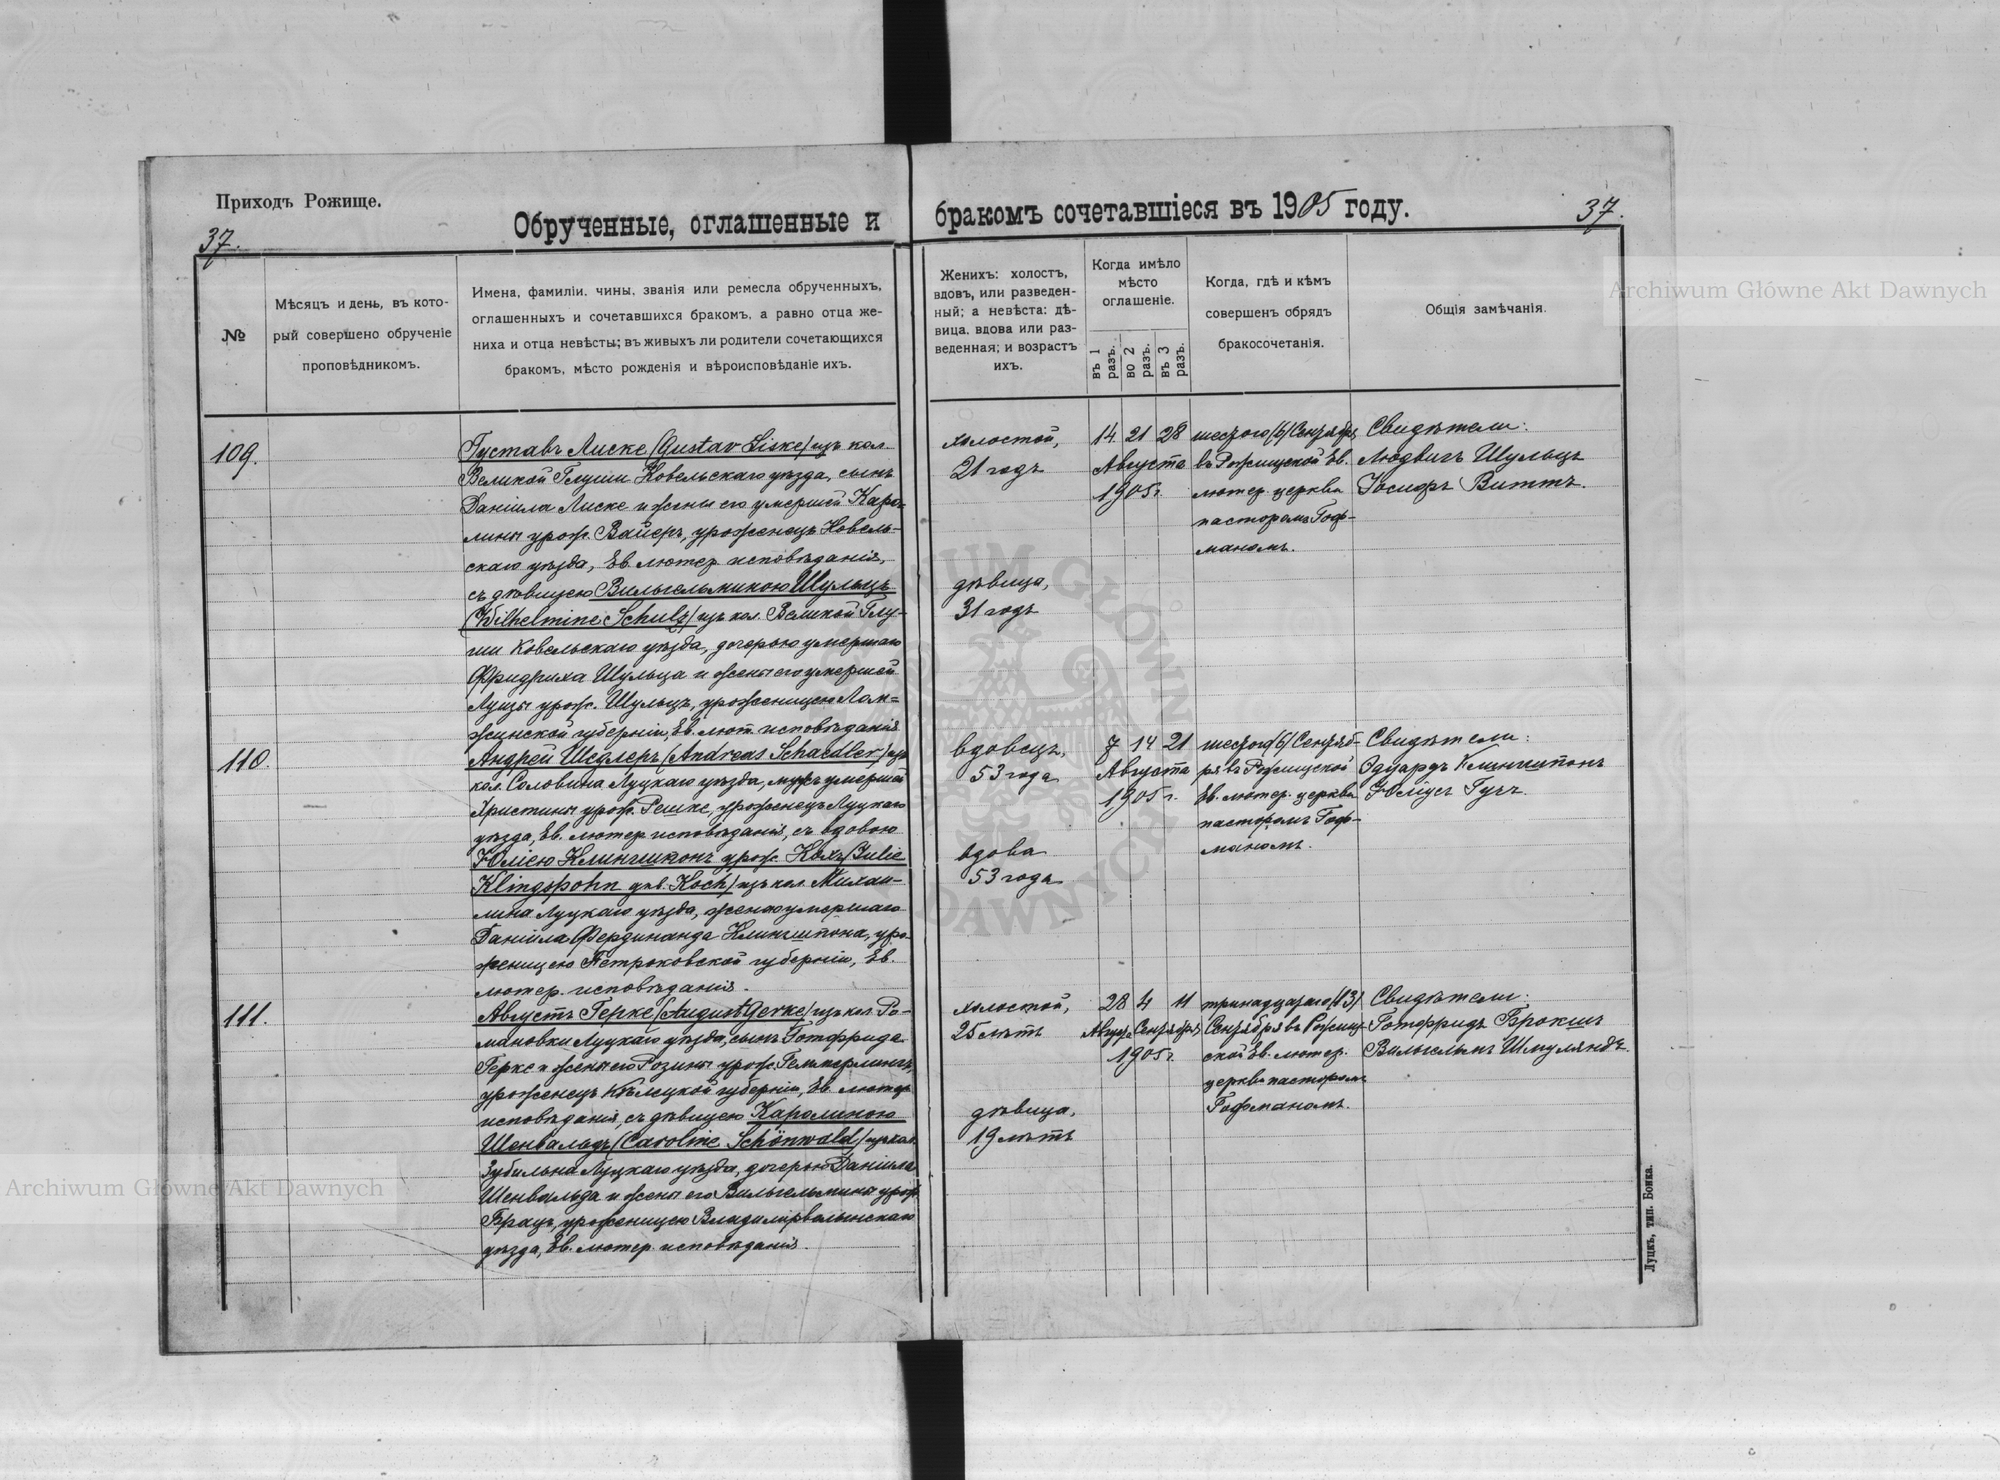 Приходъ Рожище.
37.
Обрученные, оглашенные и
бракомъ сочетавшіеся въ 1905 году.
37.
№
Мѣсяцъ и день, въ кото-
рый совершено обрученіе
проповѣдникомъ.
Имена, фамиліи, чины, званія или ремесла обрученныхъ,
оглашенныхъ и сочетавшихся бракомъ, а равно отца же-
ниха и отца невѣсты; въ живыхъ ли родители сочетающихся
бракомъ, мѣсто рожденія и вѣроисповѣданіе ихъ.
Женихъ: холостъ,
вдовъ, или разведен-
ный; а невѣста: дѣ-
вица, вдова или раз-
веденная; и возрастъ
ихъ.
Когда имѣло
мѣсто
оглашеніе.
въ 1 разъ.
во 2 разъ.
въ 3 разъ.
Когда, гдѣ и кѣмъ
совершенъ обрядъ
бракосочетанія.
Общія замѣчанія.
109.
Густавъ Лиске (Gustav Liske) изъ кол.
Великой Глуши Ковельскаго уѣзда, сынъ
Даніила Лиске и жены его умершей Каро-
лины урож. Вайеръ, уроженецъ Ковель-
скаго уѣзда, Ев. лютер. исповѣданія,
съ дѣвицею Вильгельминою Шульцъ
(Wilhelmine Schulz) изъ кол. Великой Глу-
ши Ковельскаго уѣзда, дочерью умершаго
Фридриха Шульца и жены его умершей
Луизы урож. Шульцъ, уроженицею Лом-
жинской губерніи, Ев. лют. исповѣданія
холостой,
21 годъ
дѣвица,
31 годъ
14 21 28
Августа
1905 г.
шестого (6) Сентября
въ Рожищской Ев.
лютер. церкви
пасторомъ Гоф-
маномъ.
Свидѣтели:
Людвигъ Шульцъ
Іосифъ Виттъ.
110.
Андрей Шедлеръ (Andreas Schaedler) изъ
кол. Соловина Луцкаго уѣзда, мужъ умершей
Христины урож. Решке, уроженецъ Луцкаго
уѣзда, Ев. лютер. исповѣданія, съ вдовою
Юліею Клингшпонъ урож. Кохъ (Julie
Klingspohn geb. Koch) изъ кол. Михаи-
лина Луцкаго уѣзда, женою умершаго
Даніила Фердинанда Клингшпона, уро-
женицею Петроковской губерніи, Ев.
лютер. исповѣданія.
вдовецъ,
53 года
вдова
53 года
7 14 21
Августа
1905 г.
шестого (6) Сентяб-
ря въ Рожищской
Ев. лютер. церкви
пасторомъ Гоф-
маномъ.
Свидѣтели:
Эдуардъ Клингшпонъ
Юліусъ
111.
Августъ Герке (August Gerke) изъ кол. Ро-
мановки Луцкаго уѣзда, сынъ Готфрида
Герке и жены его Розины урож.
уроженецъ Кѣлецкой губерніи, Ев. лютер.
исповѣданія, съ дѣвицею Каролиною
Шенвальдъ (Caroline Schönwald) изъ кол.
Зубильна Луцкаго уѣзда, дочерью Даніила
Шенвальда и жены его Вильгельмины урож.
уроженицею Владимірволынскаго
уѣзда, Ев. лютер. исповѣданія.
холостой,
25 лѣтъ
дѣвица,
19 лѣтъ
28 4 11
Августа Сентября
1905 г.
тринадцатаго (13)
Сентября въ Рожищ-
ской Ев. лютер.
церкви пасторомъ
Гофманомъ.
Свидѣтели:
Готфридъ Брокшъ
Вильгельмъ Шмуляндъ.
Луцкъ, тип. Бонка.
Archiwum Główne Akt Dawnych
Archiwum Główne Akt Dawnych